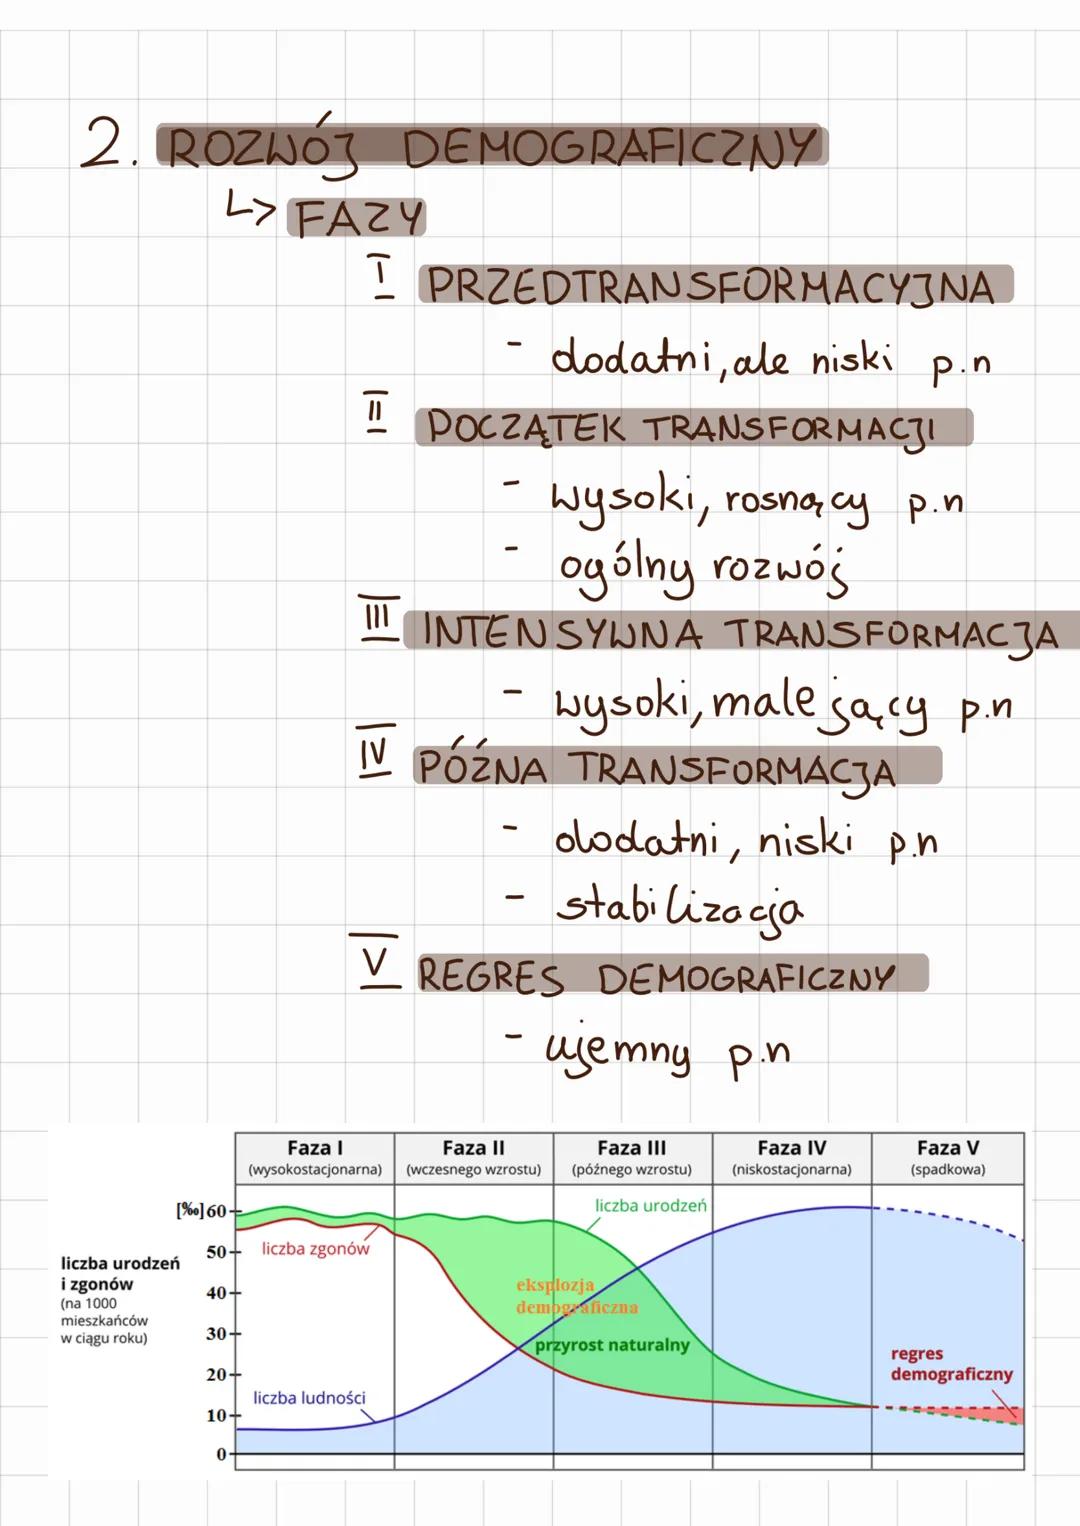 2. ROZWÓJ DEMOGRAFICZNY
↳ FAZY
I PRZEDTRANSFORMACYJNA
- dodatni, ale niski p.n
II POCZĄTEK TRANSFORMACJI
- wysoki, rosnący p.n
- ogólny rozwój
III INTENSYWNA TRANSFORMACJA
- wysoki, malejący p.n
IV PÓŹNA TRANSFORMACJA
- dodatni, niski p.n
- stabilizacja
V REGRES DEMOGRAFICZNY
- ujemny p.n
Faza I Faza II Faza III Faza IV Faza V
(wysokostacjonarna) (wczesnego wzrostu) (późnego wzrostu) (niskostacjonarna) (spadkowa)
[‰] 60
liczba urodzeń
liczba zgonów
50
liczba urodzeń
i zgonów
(na 1000
mieszkańców
w ciągu roku)
40
eksplozja
demograficzna
30
przyrost naturalny
20
regres
demograficzny
liczba ludności
10
0